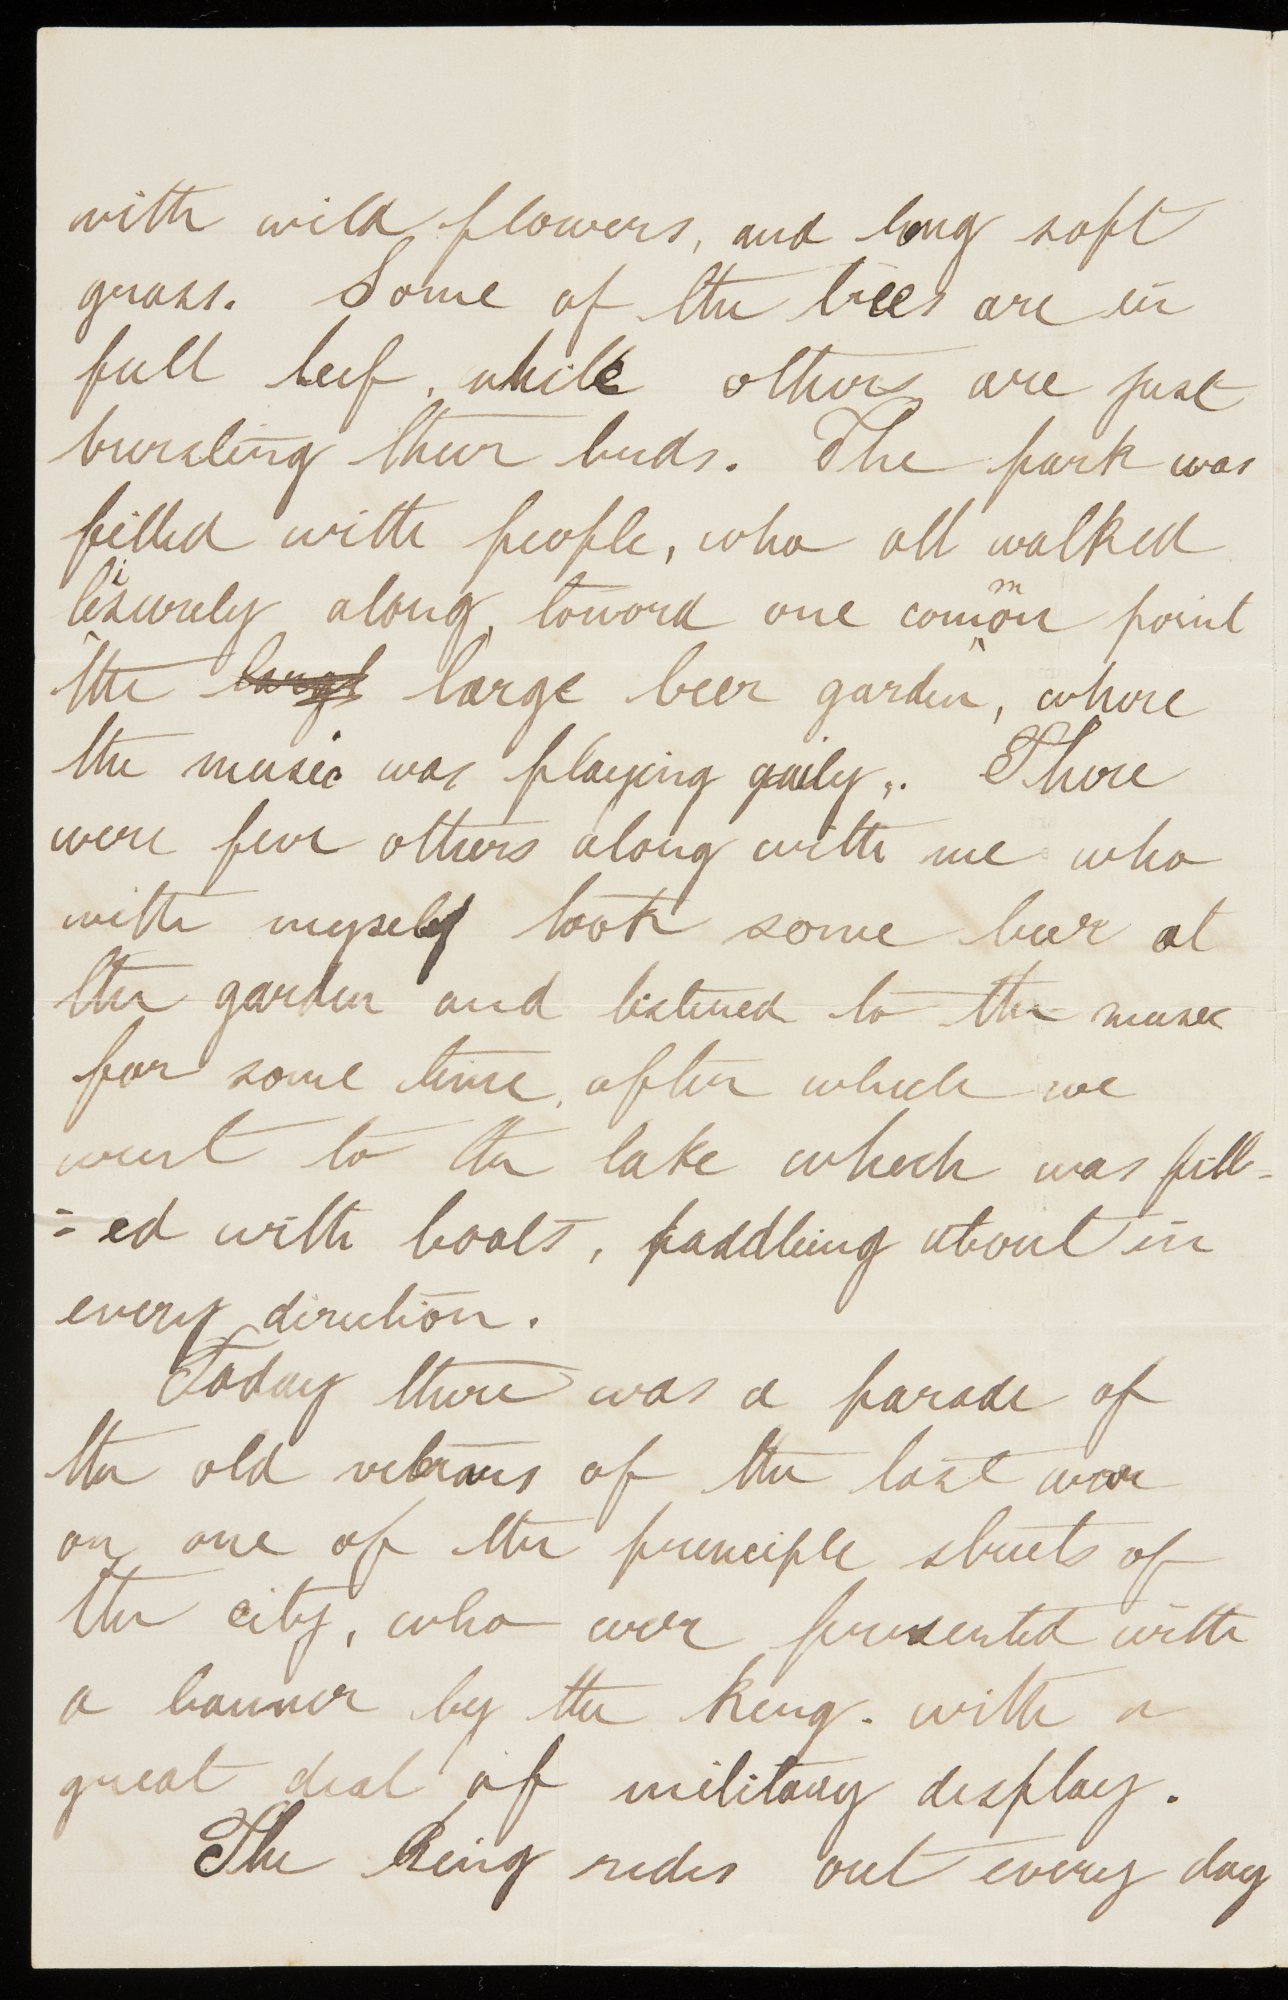 with wild flowers, and long soft
grass. Some of the trees are in
full leef, while others are just
bursting their buds. The park was
filled with people, who all walked
leisurely along, toward one common point
the large large beer garden, where
the music was playing gaily,. There
were few others along with me who
with myself took some beer at
the garden and listened to the music
for some time, after which we
went to the lake which was fill-
=ed with boats, paddleing about in
every direction.
Today there was a parade of
the old vetrans of the last war
on one of the principle streets of
the city, who wer presented with
a banner by the King. with a
great deal of military display.
The King rides out every day